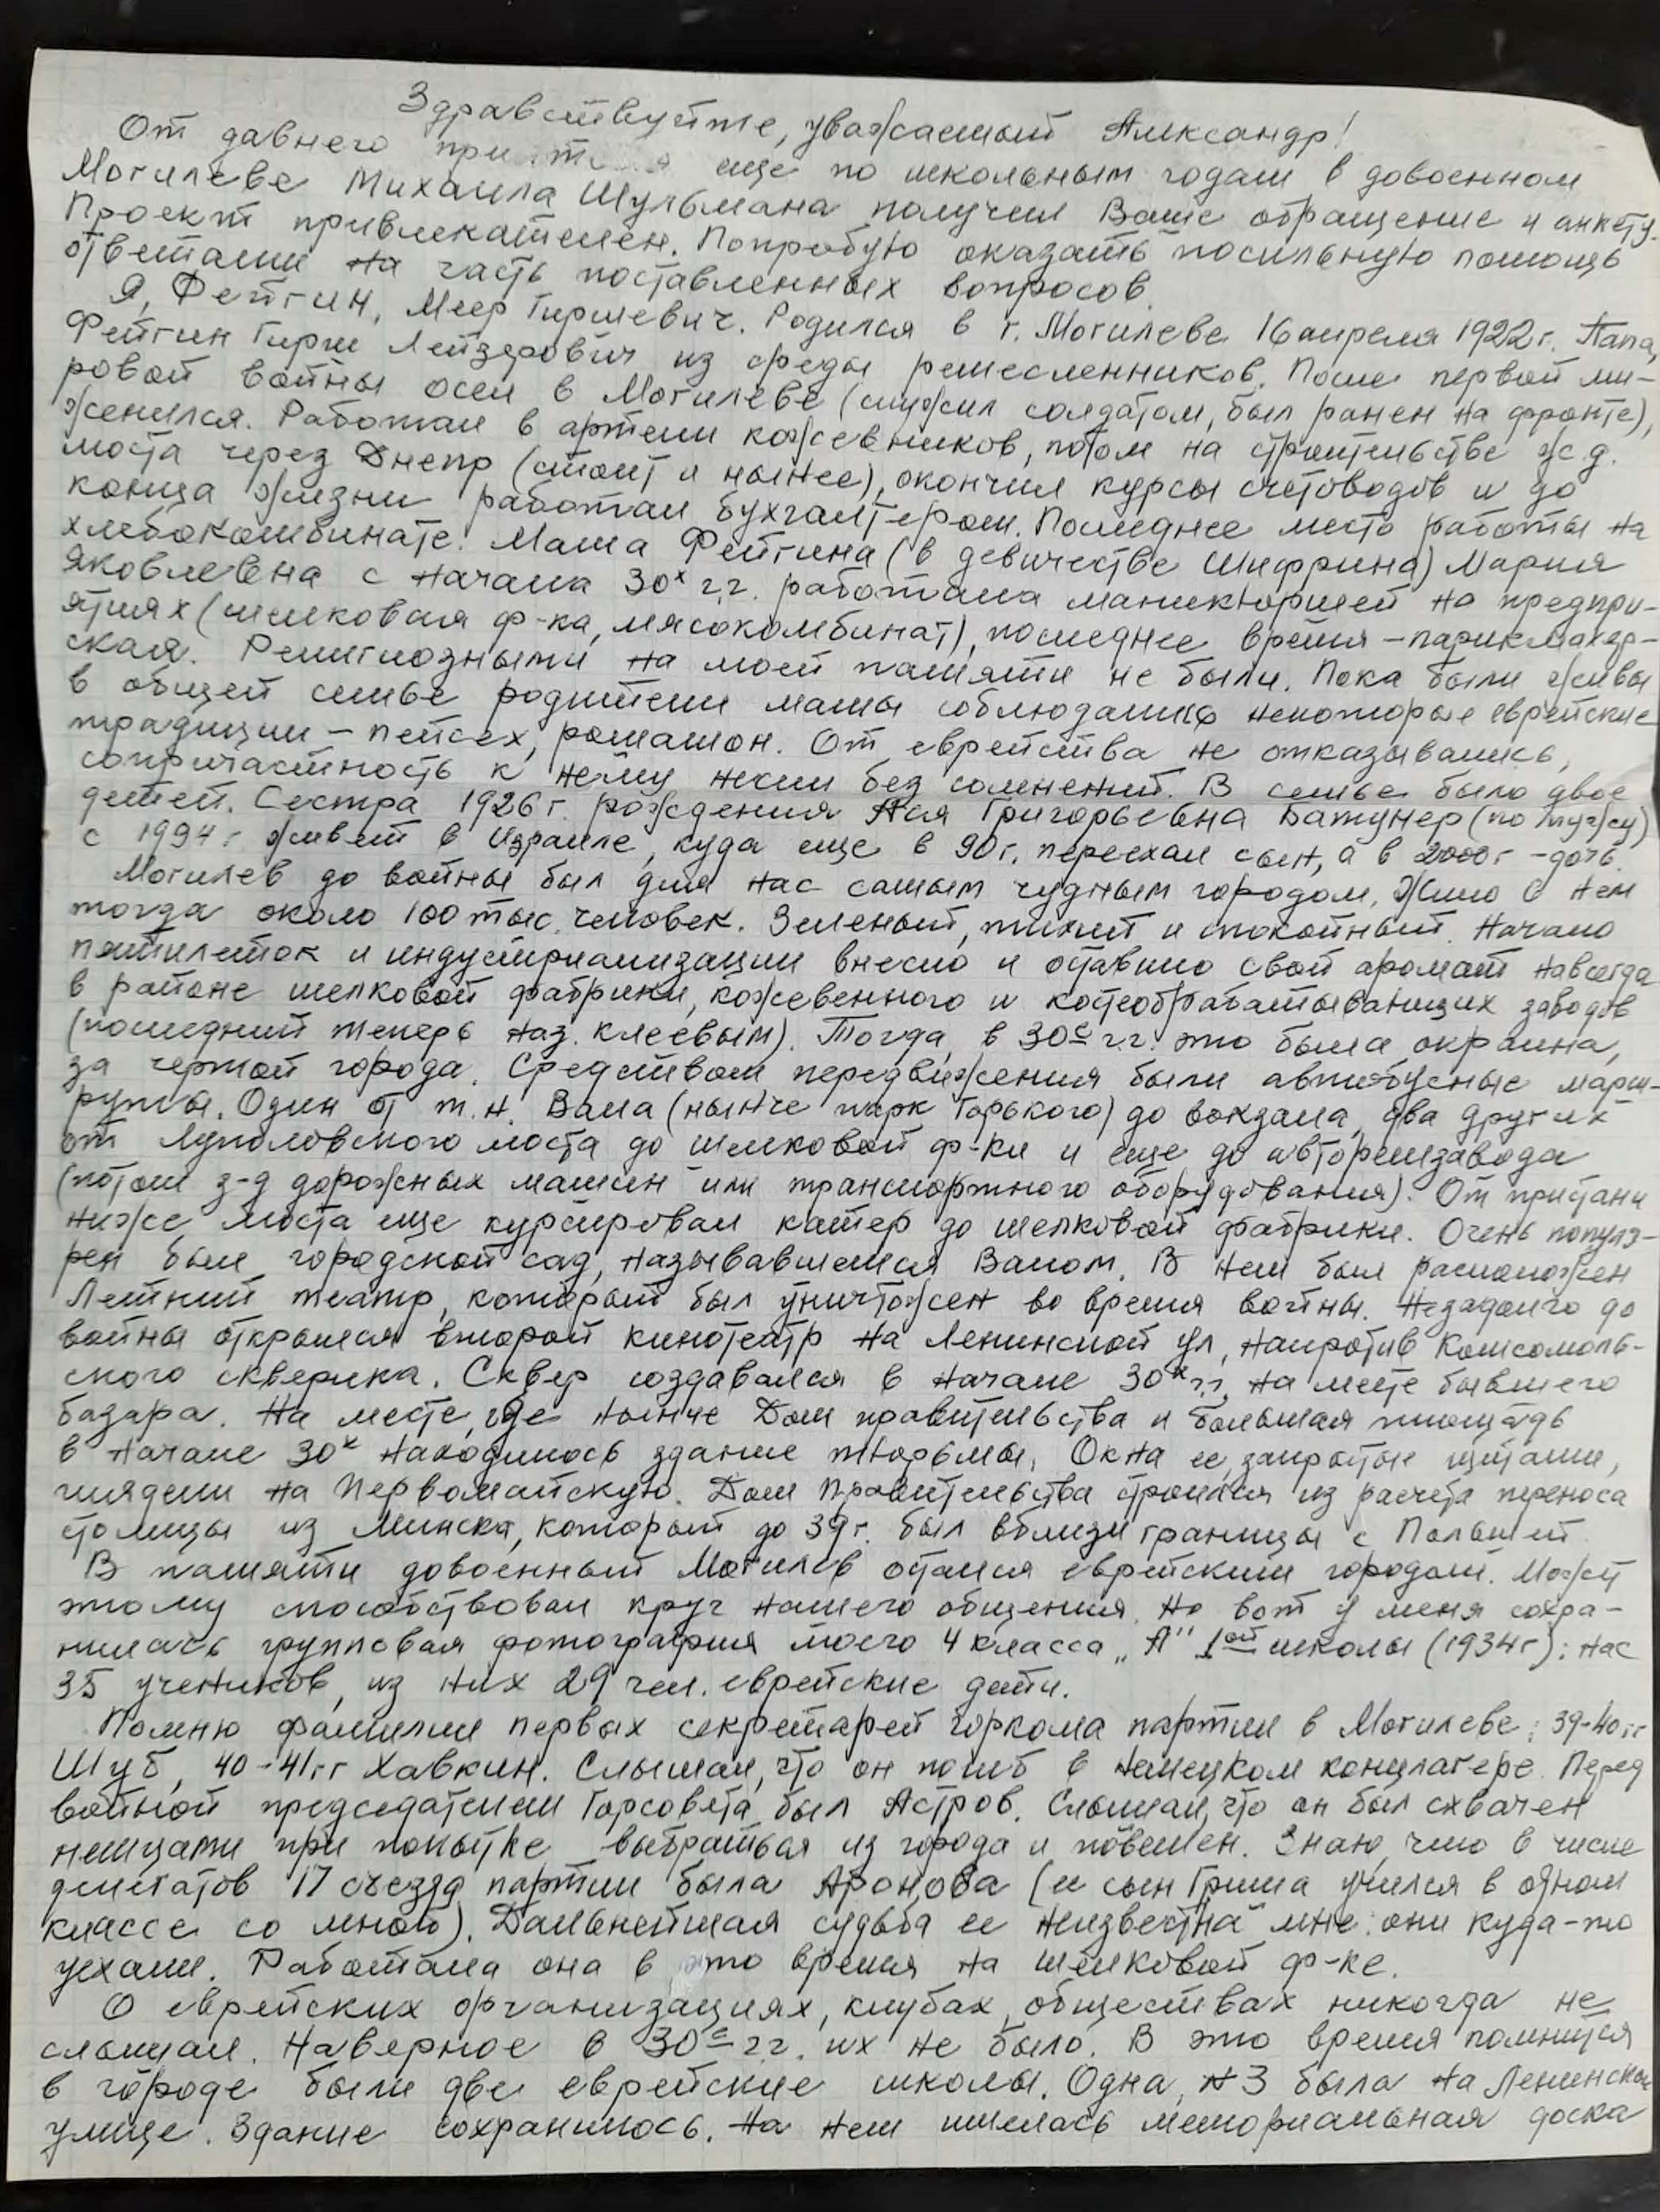 Здравствуйте, уважаемый Александр!
От давнего приятеля еще по школьным годам в довоенном
Могилеве Михаила Шульмана получил Ваше обращение и анкету.
Проект привлекателен. Попробую оказать посильную помощь
ответами на часть поставленных вопросов.
Я, Фейгин, Меер Гиршевич. Родился в г. Могилеве 16 апреля 1922 г. Папа,
Фейгин Гирш Лейзерович из среды ремесленников. После первой ми-
ровой войны осел в Могилеве (служил солдатом, был ранен на фронте),
женился. Работал в артели кожевников, потом на строительстве ж.д.
моста через Днепр (стоит и ныне), окончил курсы счетоводов и до
конца жизни работал бухгалтером. Последнее место работы на
хлебокомбинате. Мама Фейгина (в девичестве Шифрина) Мария
Яковлевна с начала 30х г.г. работала маникюршей на предпри-
ятиях (шелковая ф-ка, мясокомбинат), последнее время – парикмахер-
ская. Религиозными на моей памяти не были. Пока были живы
в общей семье родители мамы соблюдались некоторые еврейские
традиции – пейсех, рошашон. От еврейства не отказывались,
сопричастность к нему несли без сомнений. В семье было двое
детей. Сестра 1926 г. рождения Ася Григорьевна Батунер (по мужу)
с 1994 г живет в Израиле, куда еще в 90 г. переехал сын, а в 2000 г – дочь.
Могилев до войны был для нас самым чудным городом. Жило в нем
тогда около 100 тыс. человек. Зеленый, тихий и спокойный. Начало
пятилеток и индустриализации внесло и оставило свой аромат навсегда
в районе шелковой фабрики, кожевенного и костеобрабатывающих заводов
(последний теперь наз. клеевым). Тогда, в 30е г.г. это была окраина,
за чертой города. Средством передвижения были автобусные марш-
руты. Один от т.н. Вала (нынче парк Горького) до вокзала, два других
от Луполовского моста до шелковой ф-ки и еще до авторемзавода
(потом з-д дорожных машин или транспортного оборудования). От пристани
ниже моста еще курсировал катер до шелковой фабрики. Очень популя-
рен был городской сад, называвшемся Валом. В нем был расположен
Летний театр, который был уничтожен во время войны. Незадолго до
войны открылся второй кинотеатр на Ленинской ул, напротив Комсомоль-
ского скверика. Сквер создавался в начале 30х г.г. на месте бывшего
базара. На месте, где нынче Дом правительства и большая площадь
в начале 30х находилось здание тюрьмы. Окна ее, закрытые щитами,
глядели на Первомайскую. Дом Правительства строился из расчета переноса
столицы из Минска, который до 39 г. был вблизи границы с Польшей.
В памяти довоенный Могилев остался еврейским городом. Может
этому способствовал круг нашего общения. Но вот у меня сохра-
нилась групповая фотография моего 4 класса „А" 1ой школы (1934 г): нас
35 учеников, из них 29 чел. еврейские дети.
Помню фамилии первых секретарей горкома партии в Могилеве: 39-40 гг
Шуб, 40-41 гг Хавкин. Слышал, что он погиб в немецком концлагере. Перед
войной председателем Горсовета был Астров. Слышал, что он был схвачен
немцами при попытке выбраться из города и повешен. Знаю, что в числе
делегатов 17 съезда партии была Аронова (ее сын Гриша учился в одном
классе со мною). Дальнейшая судьба ее неизвестна мне: они куда-то
уехали. Работала она в это время на шелковой ф-ке.
О еврейских организациях, клубах, обществах никогда не
слышал. Наверное в 30е г.г. их не было. В это время помнится
в городе были две еврейские школы. Одна, N 3 была на Ленинской
улице. Здание сохранилось. На нем имелась мемориальная доска